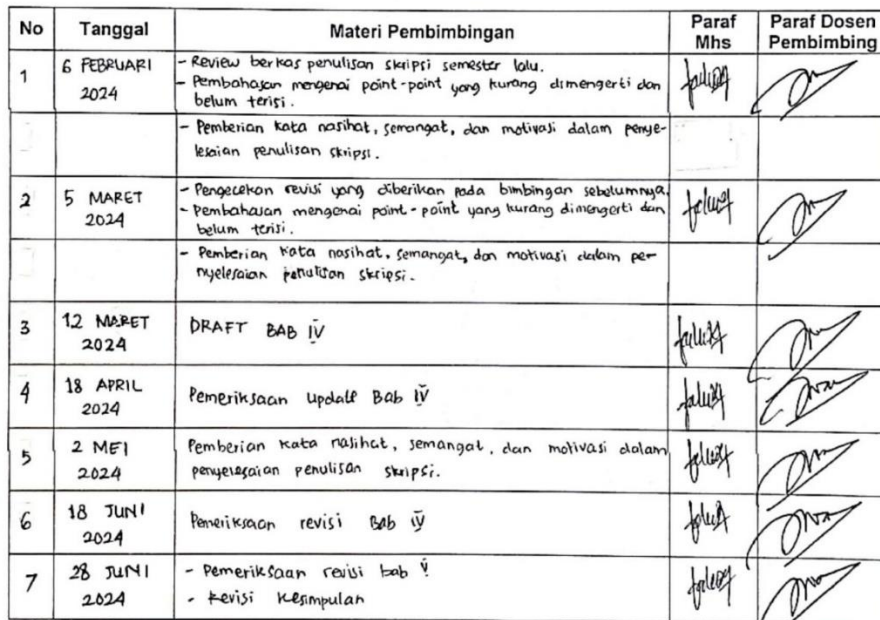 No Tanggal Materi Pembimbingan Paraf Mhs Paraf Dosen Pembimbing
1 6 FEBRUARI 2024
- Review berkas penulisan skripsi semester lalu.
- Pembahasan mengenai point-point yang kurang dimengerti dan
belum terisi.
- Pemberian kata nasihat, semangat, dan motivasi dalam penye-
lesaian penulisan skripsi.
2 5 MARET 2024
- Pengecekan revisi yang diberikan pada bimbingan sebelumnya.
- Pembahasan mengenai point-point yang kurang dimengerti dan
belum terisi.
- Pemberian kata nasihat, semangat, dan motivasi dalam pe-
nyelesaian penulisan skripsi.
3 12 MARET 2024
DRAFT BAB IV
4 18 APRIL 2024
Pemeriksaan update Bab IV
5 2 MEI 2024
Pemberian kata nasihat, semangat, dan motivasi dalam
penyelesaian penulisan skripsi.
6 18 JUNI 2024
Pemeriksaan revisi Bab IV
7 28 JUNI 2024
- Pemeriksaan revisi bab V
- Revisi kesimpulan